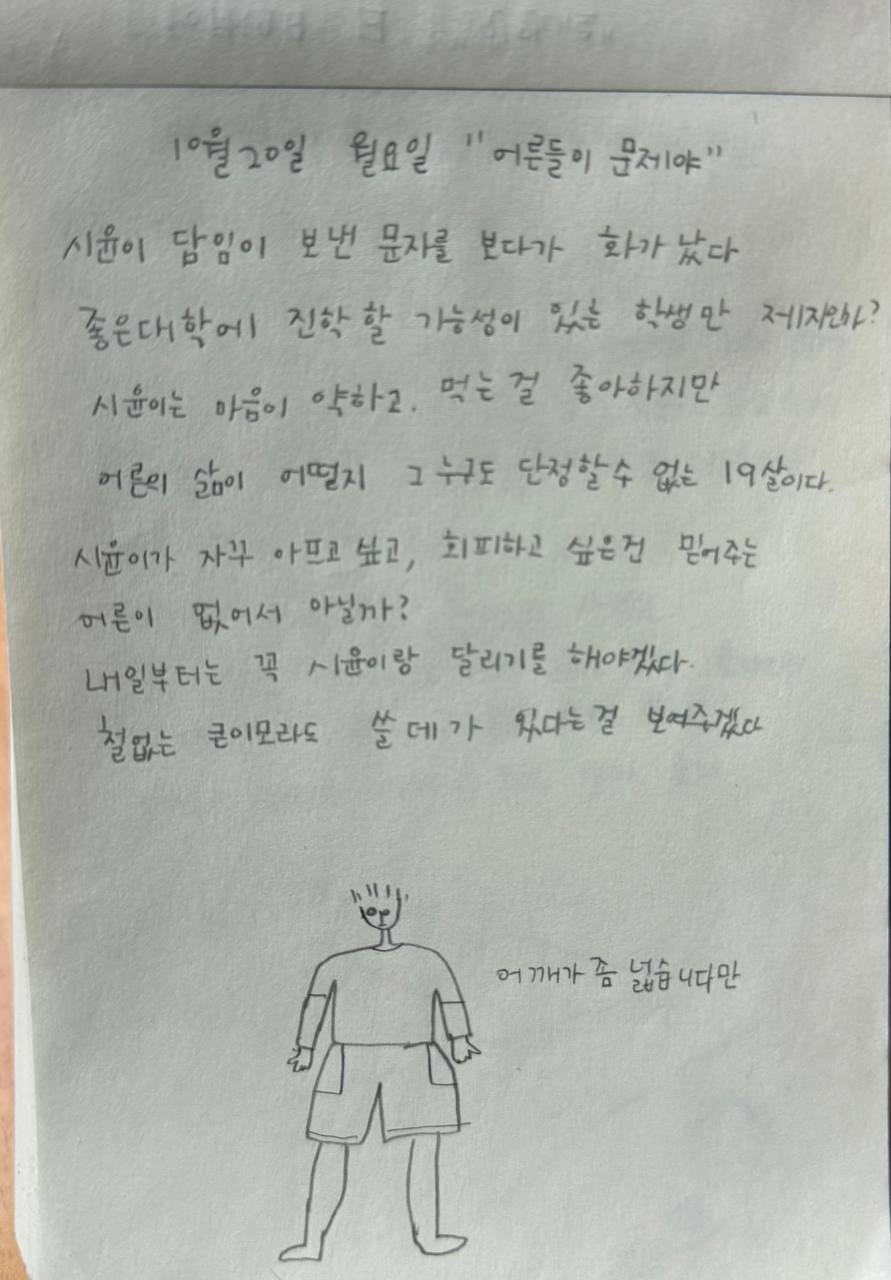 10월 20일 월요일 "어른들이 문제야"
시윤이 담임이 보낸 문자를 보다가 화가 났다
좋은대학에 진학할 가능성이 있는 학생만 제자인가?
시윤이는 마음이 약하고. 먹는 걸 좋아하지만
어른의 삶이 어떨지 그 누구도 단정할 수 없는 19살이다.
시윤이가 자꾸 아프고 싶고, 회피하고 싶은건 믿어주는
어른이 없어서 아닐까?
내일부터는 꼭 시윤이랑 달리기를 해야겠다.
철없는 큰이모라도 쓸 데가 있다는 걸 보여주겠다
어깨가 좀 넓습니다만